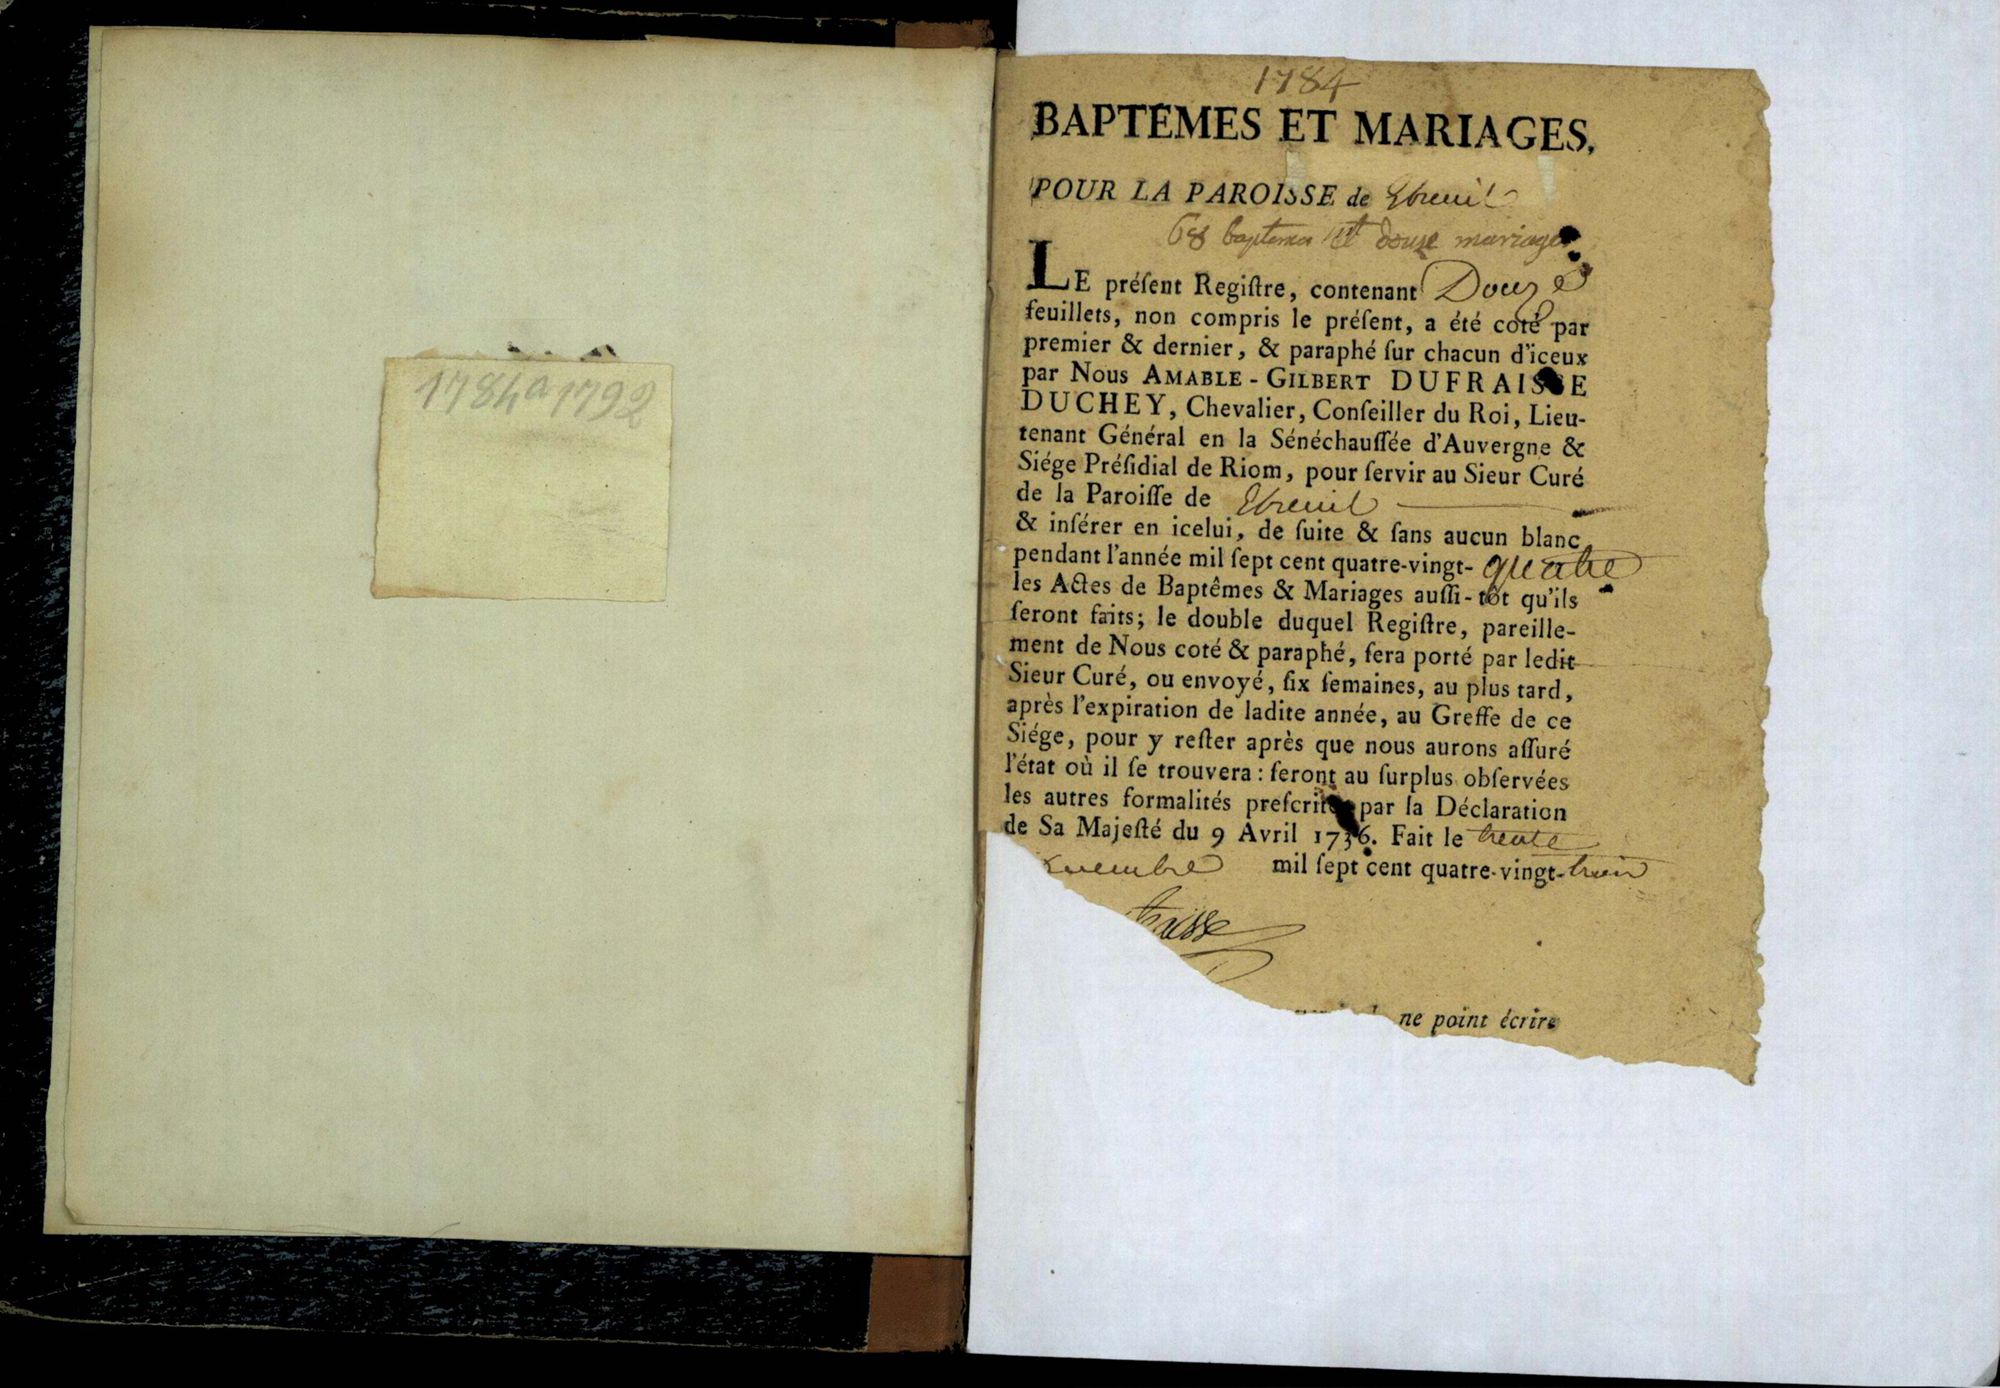 1784 a 1792
1784
BAPTEMES ET MARIAGES,
POUR LA PAROISSE de Ebreuil
68 baptemes et douze mariages
LE préſent Regiſtre, contenant Douze
feuillets, non compris le préſent, a été coté par
premier & dernier, & paraphé ſur chacun d'iceux
par Nous AMABLE-GILBERT DUFRAISSE
DUCHEY, Chevalier, Conſeiller du Roi, Lieu-
tenant Général en la Sénéchauſſée d'Auvergne &
Siége Préſidial de Riom, pour ſervir au Sieur Curé
de la Paroiſſe de Ebreuil
& inſérer en icelui, de ſuite & ſans aucun blanc,
pendant l'année mil ſept cent quatre-vingt-quatre
les Actes de Baptêmes & Mariages auſſi-tôt qu'ils
ſeront faits; le double duquel Regiſtre, pareille-
ment de Nous coté & paraphé, ſera porté par ledit
Sieur Curé, ou envoyé, ſix ſemaines, au plus tard,
après l'expiration de ladite année, au Greffe de ce
Siége, pour y reſter après que nous aurons aſſuré
l'état où il ſe trouvera: ſeront au ſurplus obſervées
les autres formalités preſcrites par la Déclaration
de Sa Majeſté du 9 Avril 1736. Fait le trente
vembre mil ſept cent quatre-vingt-trois
fraisse
ne point écrire